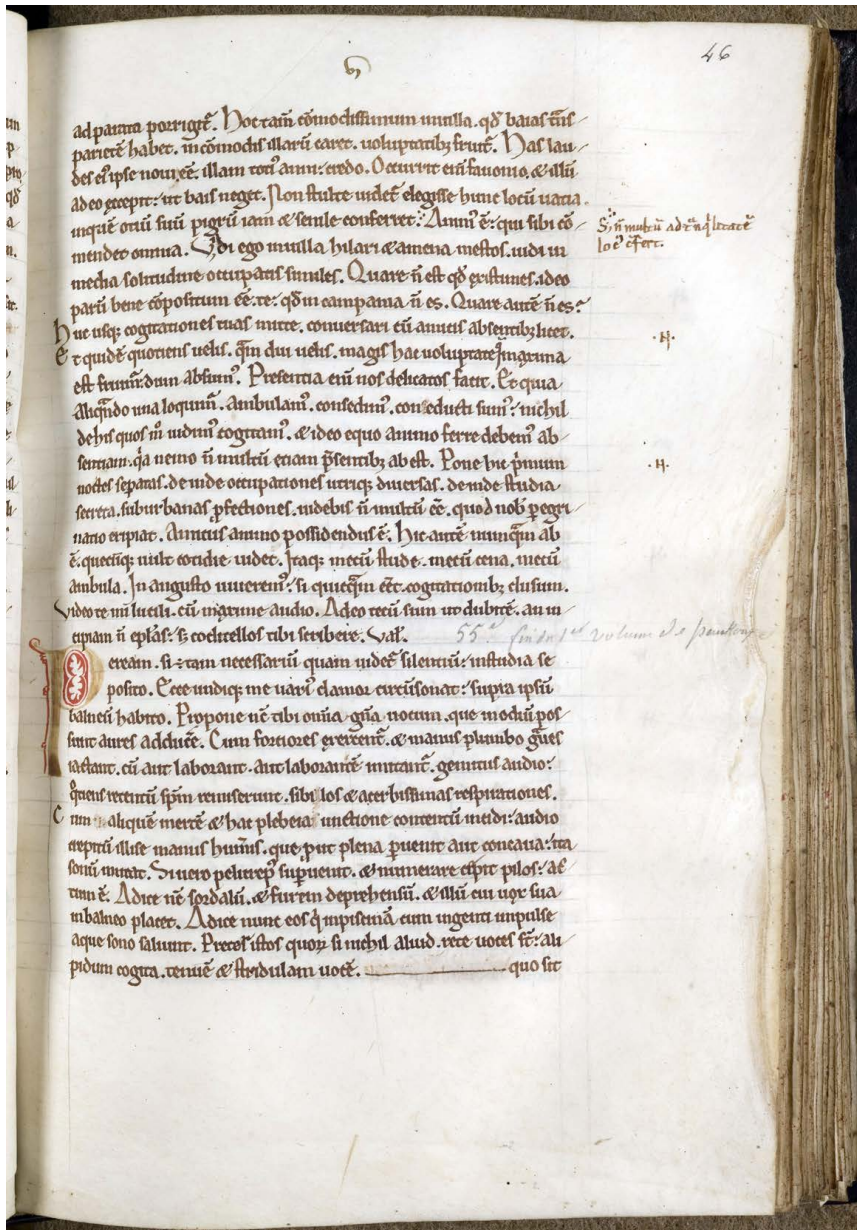 46
vi
ad parata porrigit᷑. Hoc tam̄ cōmodissimum in uilla. qd̄ baias t̄ns
parietē habet. incōmodis illarū caret. uoluptatibꝫ fruit᷑. Has lau
des ei᷒ ipse noui. eē. illam toti᷒ anni: credo. Occurrit eni᷑ fauonio. & illū
adeo excepit: ut bais neget. Non stulte uidet᷑ elegisse hunc locū uatia.
inquē otiū suū pigrū iam & senile conferret: Anim᷒ ē: qui sibi cō
mendet omnia. Vidi ego in uilla hilari & amena mestos. uidi in
media solitudine occupatis similes. Quare n̄ est qd̄ existimes. ideo
parū bene cōpositum eē. te: qd̄ in campania n̄ es. Quare autē n̄ es?
Huc usqꝫ cogitationes tuas mitte. conuersari cū amicis absentibꝫ licet.
Et quidē quotiens uelis. q̄m diu uelis. magis hac uoluptate q̄ maxima
est fruimur. dum absum᷒. Presentia eni᷑ nos delicatos facit. Et quia
Aliqn̄do una loquim᷑. Ambulam᷒. consedim᷒. cum educti sum᷒: nichil
de his quos m̊ uidim᷒ cogitam᷒. & ideo equo animo ferre debem᷒ ab
sentiam. q̇a nemo n̄ multū etiam p̄sentibꝫ ab est. Pone hic p̄mum
noctes separatas. deinde occupationes utriqꝫ diuersas. deinde studia
secreta. suburbanas ꝓfectiones. uidebis n̄ multū eē. quod nob̄ peregri
natio eripiat. Amicus animo possidendus ē. Hic autē nunq̄m ab
ē. quecūqꝫ uult cotidie uidet. Itaqꝫ mecū stude. mecū cena. mecū
ambula. In angusto uiuerem᷒: si quicq̄m eēt cogitationibꝫ clusum.
Video te mi lucili. cū maxime audio. Adeo tecū sum ut dubitē. an in
cipiam n̄ ep̄las: sꝫ codicellos tibi scribere. Val̄.
55ª fin du 1er volume
Peream. si ē tam necessariū quam uidet᷑ silentiū: in studia se
posito. Ecce undiqꝫ me uari᷒ clamor circūsonat: supra ipsū
balneū habito. Propone nc̄ tibi om̄ia gn̄a uocum. que in odiū pos
sunt aures adducē. Cum fortiores exercent᷑. & manus plumbo g̑ues
iactant. cū aut laborant. aut laborantē imitant᷑. gemitus audio:
q̊tiens retentū sp̄m remiserunt. sibilos & acerbissimas respirationes.
Cum aliquē inertē & hac plebeia unctione contentū incidi: audio
crepitū illise manus hum̄is. que put plena ꝑuenit aut concaua: ita
sonū mutat. Si uero pelicrep᷒ supuenit. & numerare cepit pilos: ac
tum ē. Adice nc̄ sordalū. & furem deprehensū. & illū cui uox sua
in balneo placet. Adice nunc eos q̇ in piscinā cum ingenti impulse
aque sono saliunt. Preter istos quorꝫ si nichil aliud. recte uoces st̄: ali
pidum cogita. tenuē & stridulam uocē. quo sit
S; n̄ multū ad t̄nq̇litatē
loc᷒ cfert.
.H.
.H.